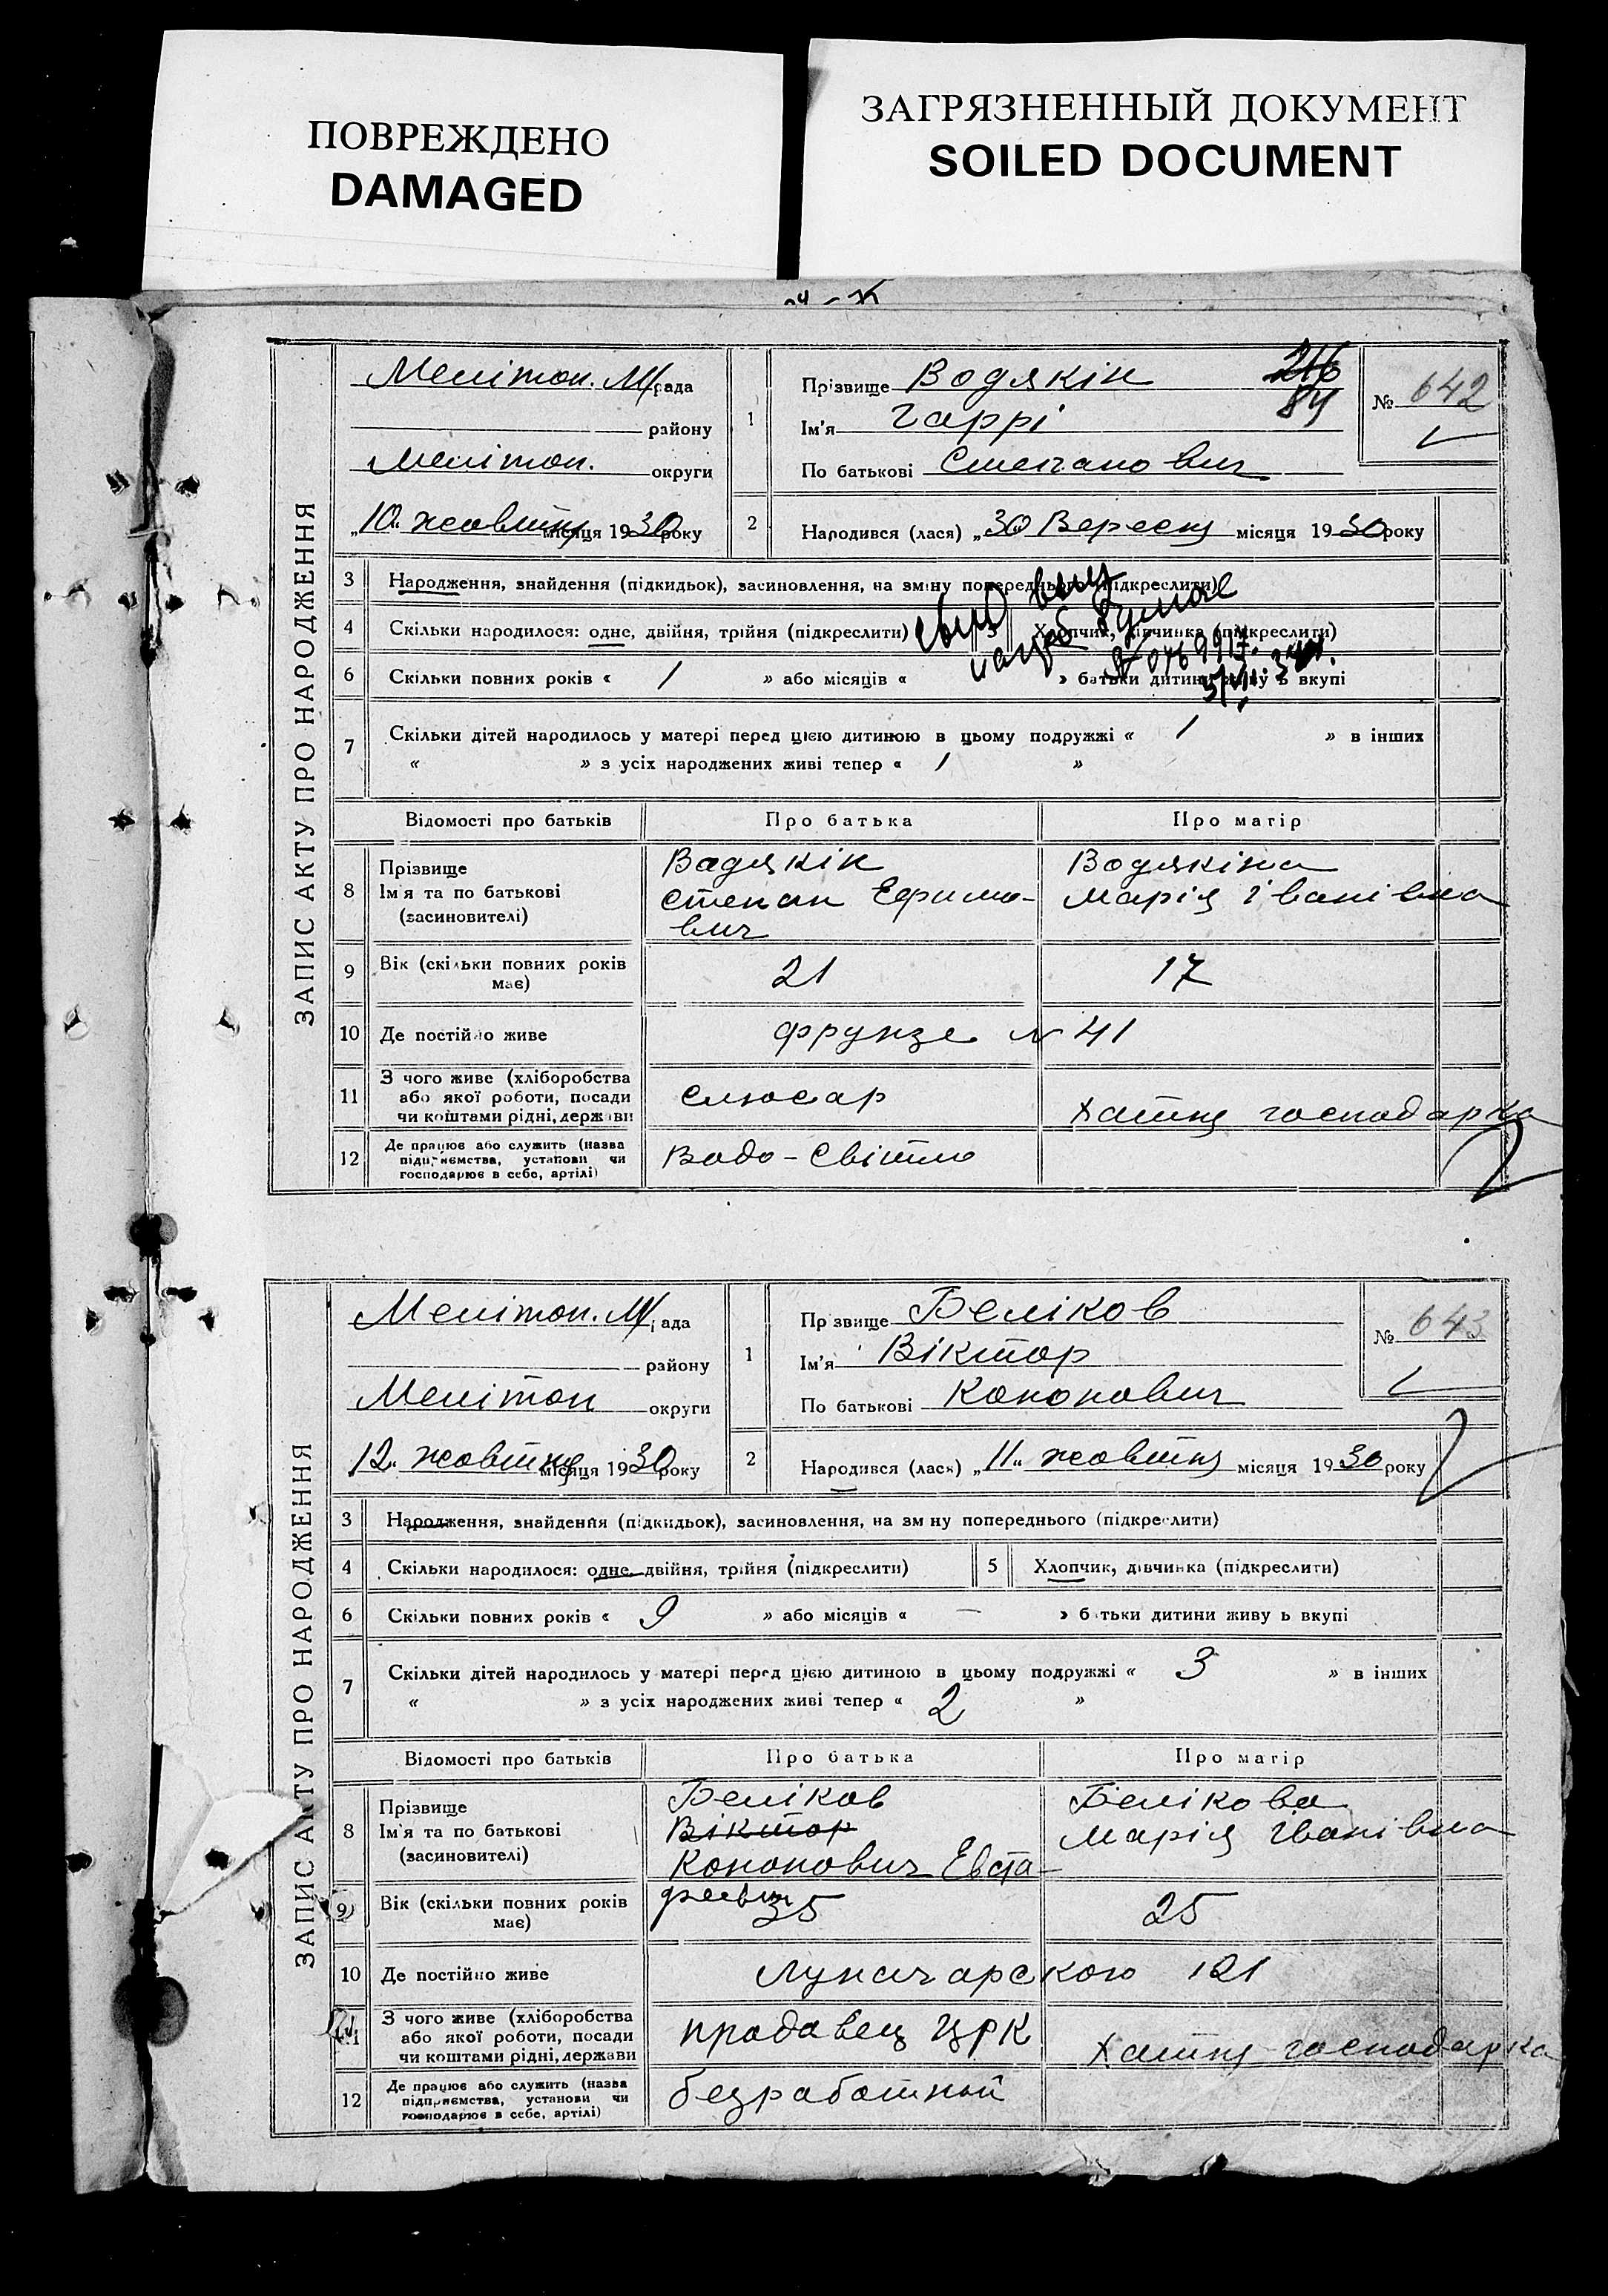 ПОВРЕЖДЕНО
DAMAGED
ЗАГРЯЗНЕННЫЙ ДОКУМЕНТ
SOILED DOCUMENT
ЗАПИС АКТУ ПРО НАРОДЖЕННЯ
Меліт оп. М/рада
району
Мелітоп. округи
„10„ жовтня місяця 1930 року
1
Прізвище Водякін
216
Ім'я Гаррі
84
По батькові Степанович
№ 642
2
Народився (лася) „30 Вересня місяця 1930 року
3 Народження, знайдення (підкидьок), засиновлення, на зміну попереднього (підкреслити)
4 Скільки народилося: одне, двійня, трійня (підкреслити) 5 Хлопчик, дівчинка (підкреслити)
6 Скільки повних років « 1 » або місяців « » батьки дитини живуть вкупі
7 Скільки дітей народилось у матері перед цією дитиною в цьому подружжі « 1 » в інших
« » з усіх народжених живі тепер « 1 »
Відомості про батьків Про батька Про матір
8 Прізвище Водякін Водякіна
Ім'я та по батькові Степан Ефимо- Марія Іванівна
(засиновителі) вич
9 Вік (скільки повних років має) 21 17
10 Де постійно живе Фрунзе № 41
11 З чого живе (хліборобства
або якої роботи, посади слюсар Хатня господарка
чи коштами рідні, держави
12 Де працює або служить (назва
підприємства, установи чи Водо-Світло
господарює в себе, артілі)
ЗАПИС АКТУ ПРО НАРОДЖЕННЯ
Мелітоп. М/рада
району
Мелітоп округи
12„ жовтня місяця 1930 року
1
Прізвище Беліков
Ім'я Віктор
По батькові Кононович
№ 643
2
Народився (лася) „11„ жовтня місяця 1930 року
3 Народження, знайдення (підкидьок), засиновлення, на зміну попереднього (підкреслити)
4 Скільки народилося: одне, двійня, трійня (підкреслити) 5 Хлопчик, дівчинка (підкреслити)
6 Скільки повних років « 9 » або місяців « — » батьки дитини живуть вкупі
7 Скільки дітей народилось у матері перед цією дитиною в цьому подружжі « 3 » в інших
« » з усіх народжених живі тепер « 2 »
Відомості про батьків Про батька Про матір
8 Прізвище Беліков Белікова
Ім'я та по батькові Віктор Марія Іванівна
(засиновителі) Кононович Евста-
9 Вік (скільки повних років має) 35 25
10 Де постійно живе Луначарского 121
11 З чого живе (хліборобства
або якої роботи, посади продавец ЦРК Хатня господарка
чи коштами рідні, держави
12 Де працює або служить (назва
підприємства, установи чи безработный
господарює в себе, артілі)